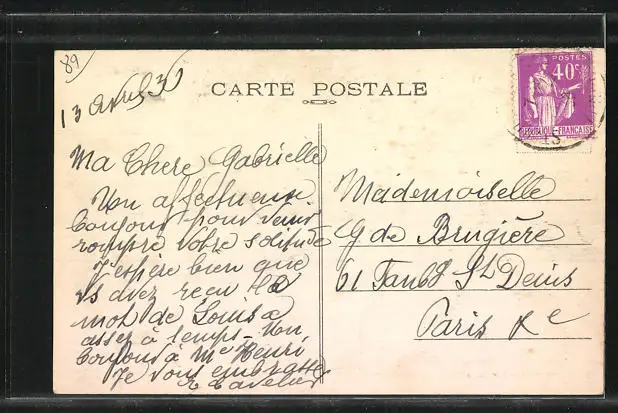 89
13 avril 30
CARTE POSTALE
POSTES
40c
REPUBLIQUE FRANÇAISE
Ma Chere Gabrielle
Un affectueux
bonjour pour venir
rompre votre solitude
J'espère bien que
Vs avez reçu le
mot de Louisa
assez à temps - Un
bonjour à Me Henri
Je vous embrasse
Mademoiselle
G de Brugière
61 Faubg St Denis
Paris Xe